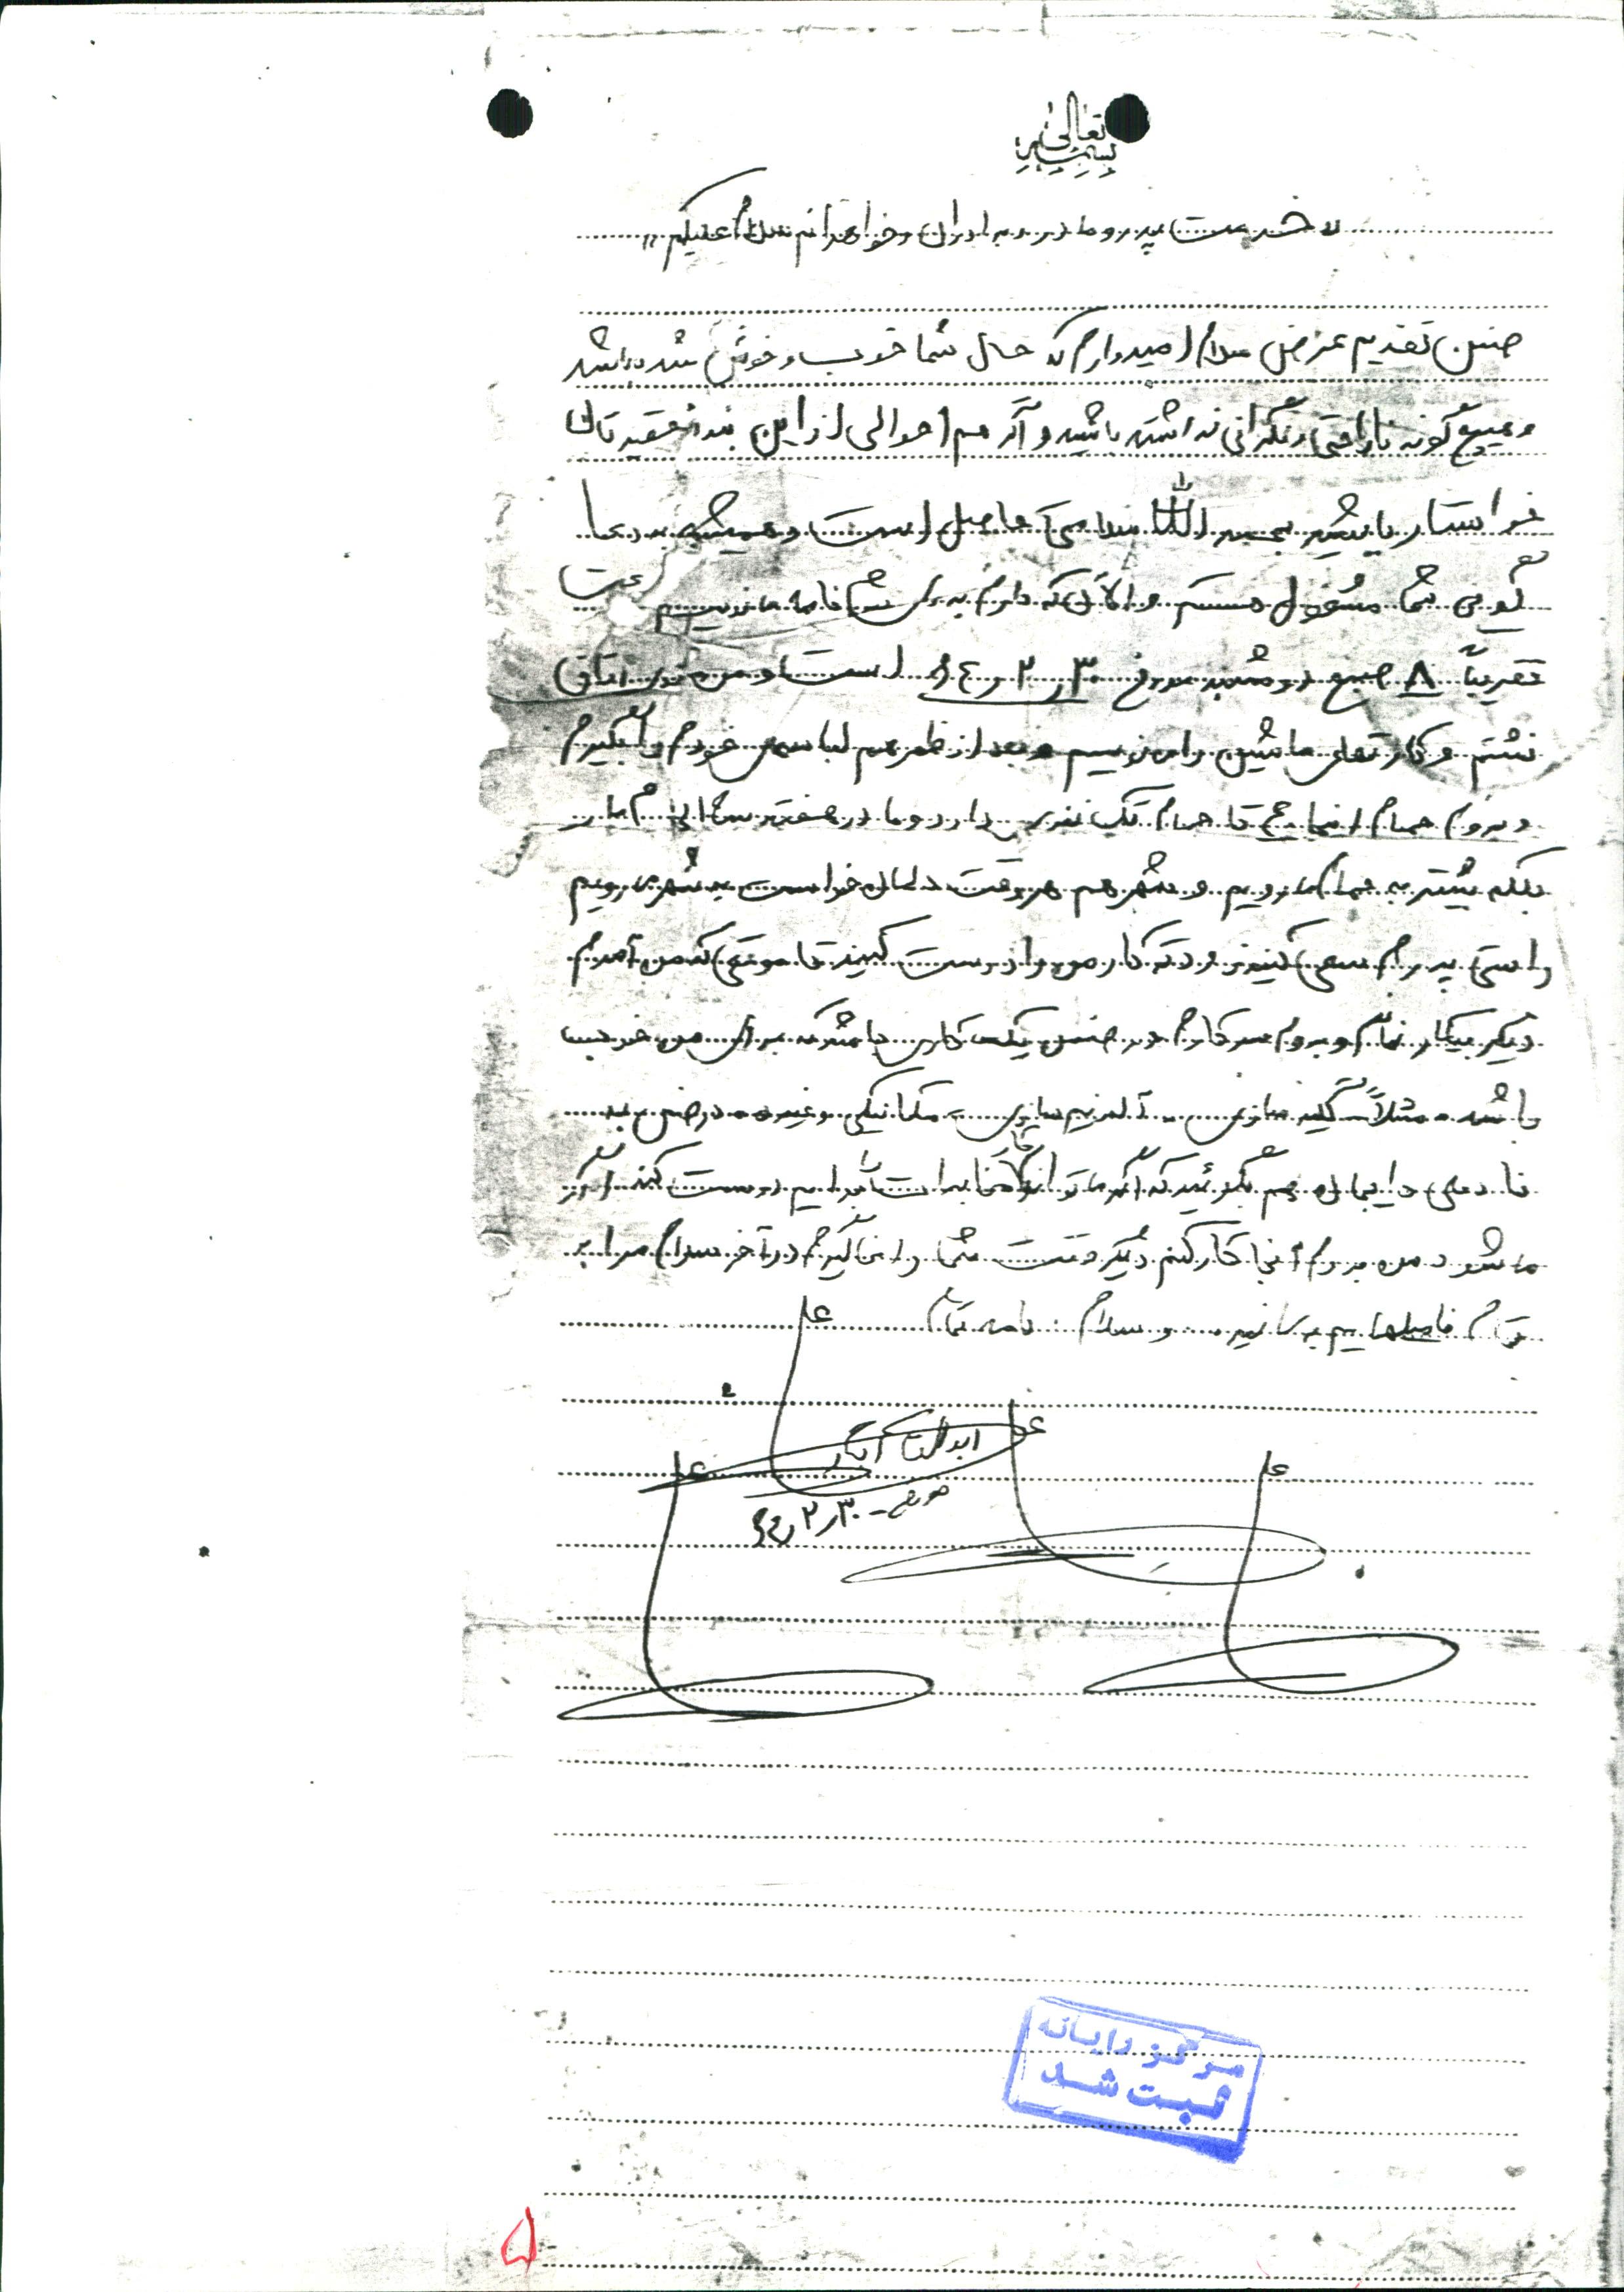 بسمه تعالی
« خدمت پدر و مادر و برادران و خواهرانم سلام علیکم »
ضمن تقدیم عرض سلام امیدوارم که حال شما خوب و خوش باشد
و هیچ گونه ناراحتی و نگرانی نداشته باشید و اگر هم احوالی از این بنده حقیر تان
خواستار باشید بحمد الله سلامتی حاصل است و همیشه به دعا
گوئی شما مشغول هستم و الآن که دارم برای شما نامه می نویسم ساعت
تقریباً ۸ صبح دوشنبه مورخ ۳۰ر۲ر۶۴ است و من توی اتاق
نشتم و کار تعلی ماشین را می نویسم و بعد از ظهر هم لباسهای خودم را بگیرم
و بروم حمام اینجا تا حمام تک نفری دارد و ما در هفته سه الی م بار
بلکه بیشتر به حمام می رویم و شهر هم هر وقت دلمان خواست به شهر می رویم
راستی پدرم سعی کنید زودتر کار من را درست کنید تا موقعی که من آمدم
دیگر بیکار نمانم و بروم سر کارم در ضمن یک کاری باشد که برای من خوب
باشد مثلاً کابینت سازی .. آلمنیم سازی .. مکانیکی و غیره در ضمن به
دایمان هم بگوئید که اگر می تواند کار مخابرات را برایم درست کند اگر
می شود من بروم آنجا کار کنم دیگر وقت شما را نمی گیرم در آخر سلام مرا به
تمام فامیلهایم برسانید و سلام . نامه تمام
علی
ابوالقاسم
علی
علی
علی
۳۰ر۲ر۶۴
مرکز رایانه
ثبت شد
۵